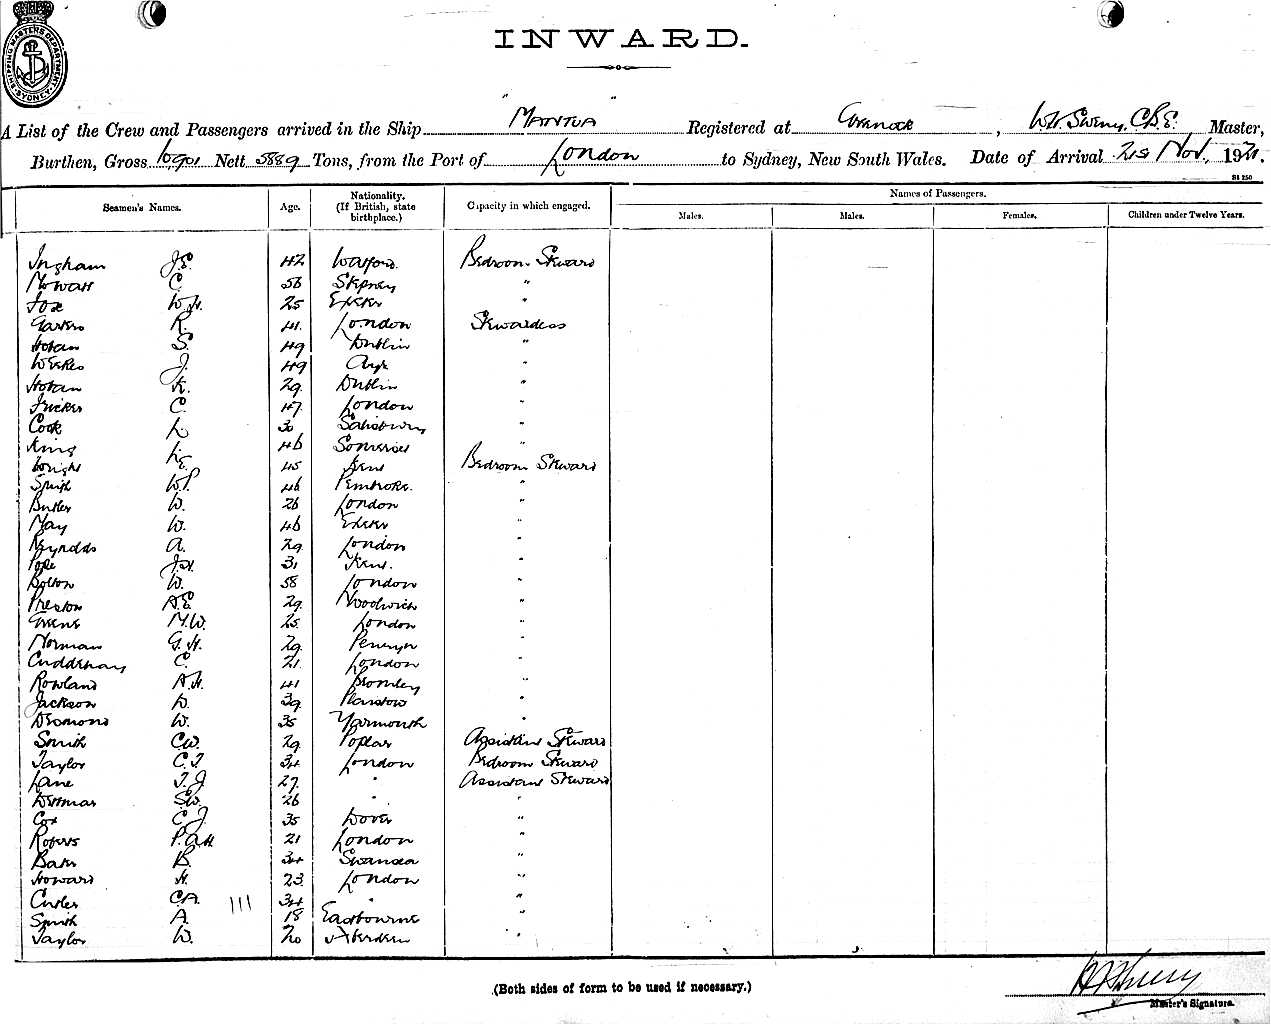 SHIPPING MASTERS DEPARTMENT SYDNEY
INWARD.
A List of the Crew and Passengers arrived in the Ship " MANTUA " Registered at Greenock, Master,
Burthen, Gross Nett 5889 Tons, from the Port of London to Sydney, New South Wales. Date of Arrival 21st Nov., 192
S1 250
Seamen's Names. Age. Nationality. (If British, state birthplace.) Capacity in which engaged. Names of Passengers.
Males. Males. Females. Children under Twelve Years.
Ingham J.E. 42 Watford. Bedroom Steward
Mowatt C. 56 Stepney "
Fox W.H. 25 Exeter "
R. 41. London Stewardess
Hoban S. 49 Dublin "
Weekes J. 49 Ayr "
Hoban K. 29. Dublin "
Fricker C. 47. London "
Cook L. 30 Salisbury "
King L. 46 Somerset "
Wright E. 45 Kent Bedroom Steward
Smith W.P. 46 Pembroke. "
Butler W. 26 London "
May W. 46 Exeter "
Reynolds A. 29. London "
Pope J.H. 31 Kent. "
Bolton W. 58 London "
Preston A.E. 29. Woodwich "
Greene M.W. 25 London "
Norman G.H. 29. Penryn "
Cuddehay C. 21. London "
Rowland A.H. 41 Bromley "
Jackson D. 39 Plaistow "
Desmond W. 35 Yarmouth "
Smith C.W. 29 Poplar Assistant Steward
Taylor C.J. 34 London Bedroom Steward
Lane T.J. 27. " Assistant Steward
S.W. 26 " "
Cox C.J. 35 Dover "
Roberts P.A.H 21 London "
Baker B. 34 Swansea "
Howard H. 23. London "
Cutler C.A. 34 " "
Smith A. 18 Eastbourne "
Taylor W. 20 Aberdeen "
(Both sides of form to be used if necessary.)
Master's Signature.